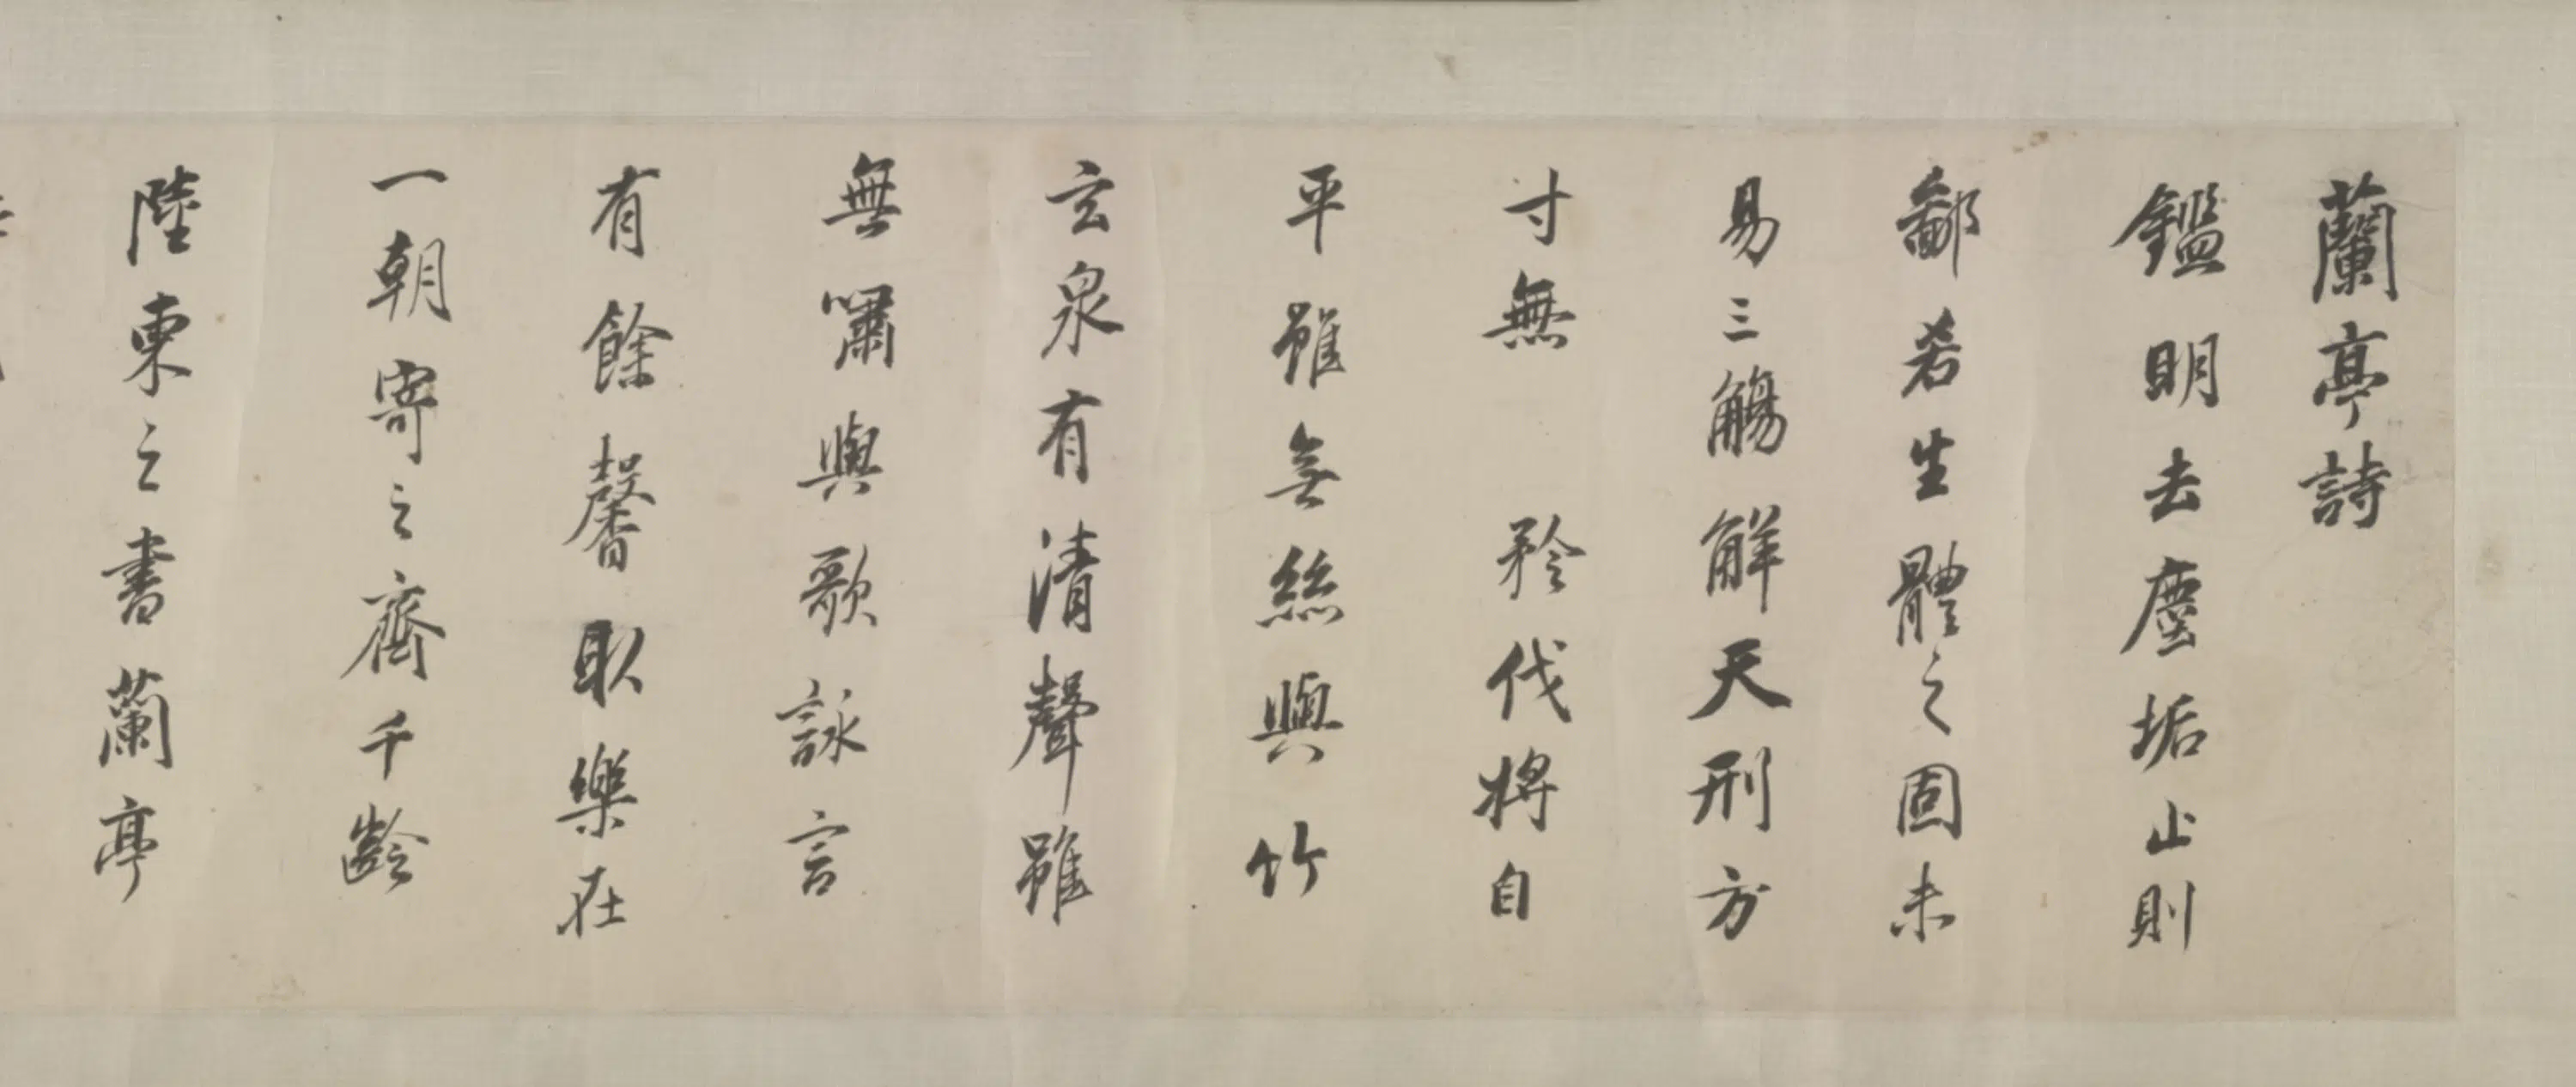 蘭亭詩
鑑明去塵垢止則
鄙吝生體之固未
易三觴解天刑方
寸無 矜伐將自
平雖無絲與竹
玄泉有清聲雖
無嘯與歌詠言
有餘馨取樂在
一朝寄之齊千齡
陸柬之書蘭亭